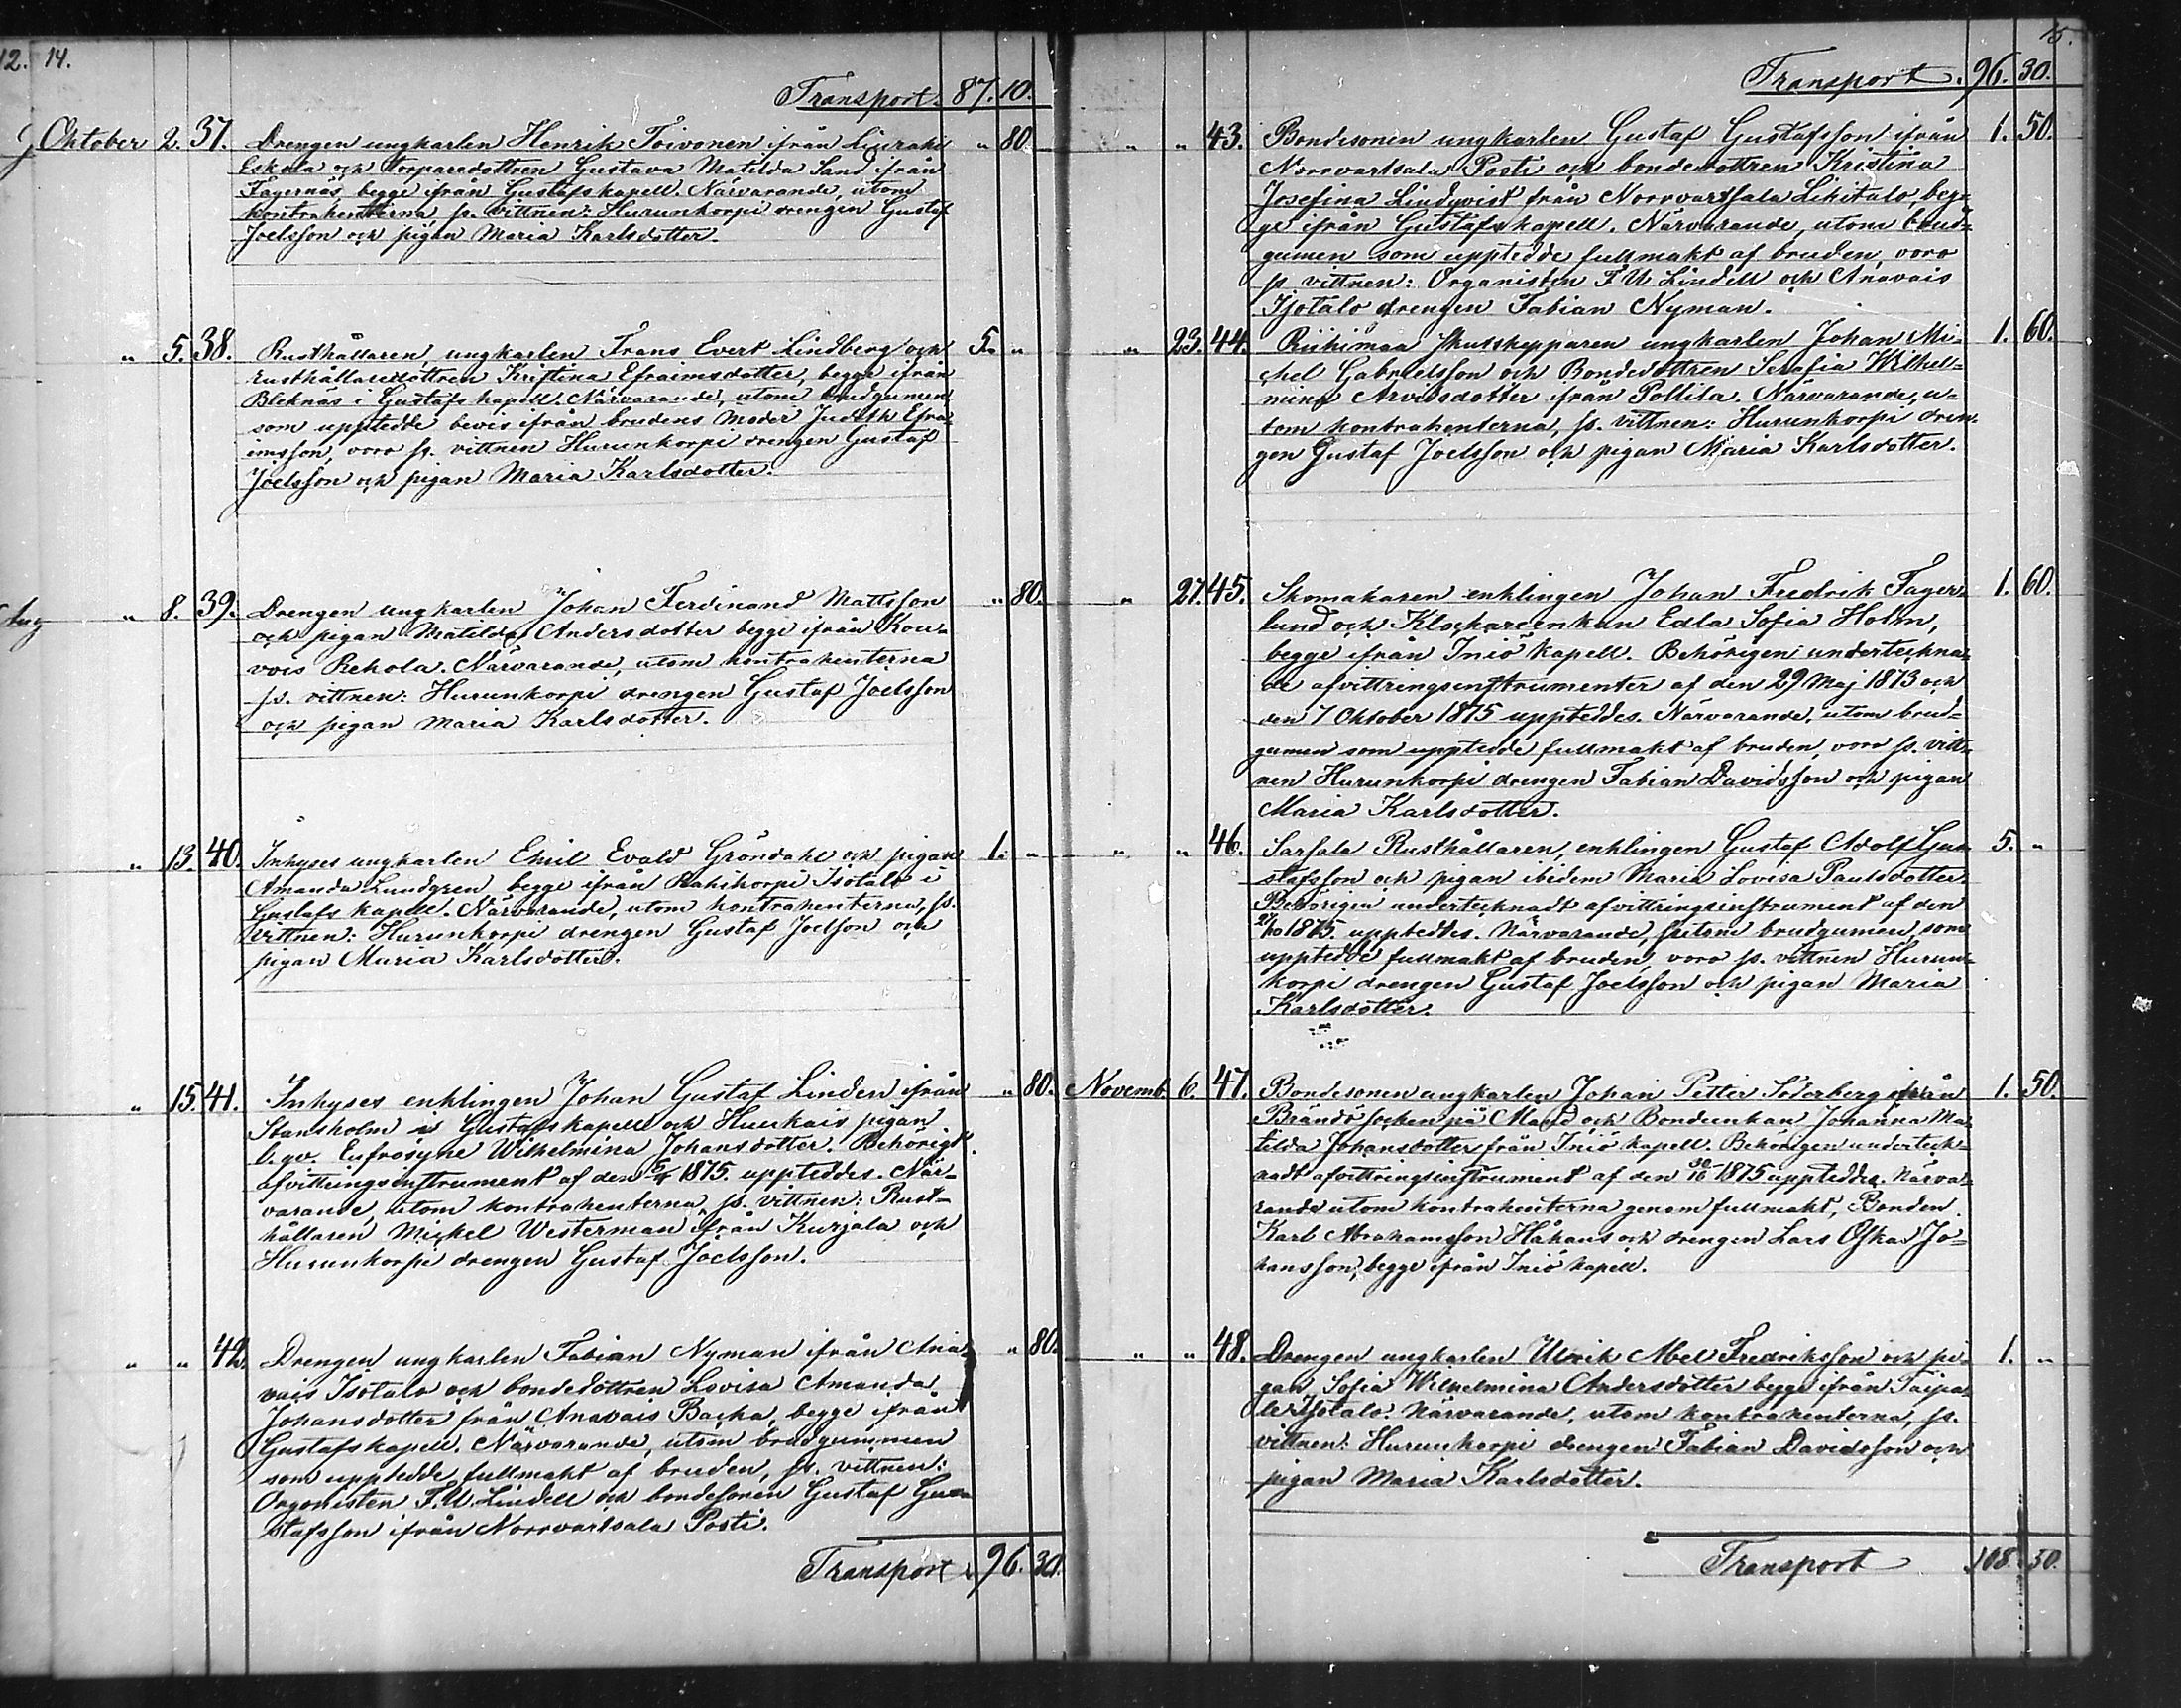 12. 14.
Transport. 87. 10.
Oktober 2. 37. Drengen ungkarlen Henrik Toivonen ifrån Liuraki " 80.
Eskola och torparedottren Gustava Matilda Sand ifrån
Fagernäs, begge ifrån Gustafs kapell. Närvarande, utom
kontrahenterna, ss. vittnen: Hurunkorpi drengen Gustaf
Joelsson och pigan Maria Karlsdotter.
" 5. 38. Rusthållaren, ungkarlen Frans Evert Lindberg och 5. "
rusthållaredottren Kristina Efraimsdotter, begge ifrån
Bleknäs i Gustafs kapell. Närvarande, utom brudgumen
som upptedde bevis ifrån brudens moder Judith Efra-
imsson, voro ss. vittnen Hurunkorpi drengen Gustaf
Joelsson och pigan Maria Karlsdotter.
" 8. 39. Drengen ungkarlen Johan Ferdinand Mattsson " 80.
och pigan Matilda Andersdotter begge ifrån Kou-
vois Rekola. Närvarande, utom kontrahenterna
ss. vittnen: Hurunkorpi drengen Gustaf Joelsson
och pigan Maria Karlsdotter.
" 13. 40. Inhyses ungkarlen Emil Evald Gröndahl och pigan 1. "
Amanda Lundgren, begge ifrån Rahikorpi Isotalo i
Gustafs kapell. Närvarande, utom kontrahenterna, ss.
vittnen: Hurunkorpi drengen Gustaf Joelson och
pigan Maria Karlsdotter.
" 15. 41. Inhyses enklingen Johan Gustaf Linden ifrån " 80.
Stansholm i Gustafs kapell och pigan
Eufrosyne Wilhelmina Johansdotter. Behörigt
afvittringsinstrument af den 5/4 1875. uppteddes. När-
varande, utom kontrahenterna, ss. vittnen: Rust-
hållaren Mickel Westerman ifrån Kurjala och
Hurunkorpi drengen Gustaf Joelsson.
" " 42. Drengen ungkarlen Fabian Nyman ifrån Ana- " 80.
vais Isotalo och bondedottren Lovisa Amanda
Johansdotter från Anavais Backa, begge ifrån
Gustafs kapell. Närvarande, utom brudgummen
som upptedde fullmakt af bruden, ss. vittnen:
Organisten F.U. Lindell och bondesonen Gustaf Gu-
stafsson ifrån Norrvartsala Posti.
Transport 96. 30.
15.
Transport. 96. 30.
" " 43. Bondesonen ungkarlen Gustaf Gustafsson ifrån 1. 50.
Norrvartsala Posti och bondedottren Kristina
Josefina Lindqvist från Norrvartsala Likitalo, beg-
ge ifrån Gustafs kapell. Närvarande, utom brud-
gumen som upptedde fullmakt af bruden, voro
ss vittnen: Organisten F U Lindell och Anavais
Isotalo drengen Fabian Nyman.
" 23. 44. Riihimaa skutskepparen ungkarlen Johan Mi- 1. 60.
chel Gabrielsson och Bondedottren Serafia Wilhel-
mina Arvidsdotter ifrån Pollila. Närvarande, u-
tom kontrahenterna, ss. vittnen: Hurunkorpi dren-
gen Gustaf Joelsson och pigan Maria Karlsdotter.
" 27. 45. Skomakaren enklingen Johan Fredrik Fager- 1. 60.
lund och Klockareenkan Edla Sofia Holm,
begge ifrån Iniö kapell. Behörigen undertechna-
de afvittringsinstrumenter af den 29 Maj 1873 och
den 7 Oktober 1875 uppteddes. Närvarande, utom brud-
gumen som upptedde fullmakt af bruden, voro ss. vitt-
nen Hurunkorpi drengen Fabian Davidsson och pigan
Maria Karlsdotter.
" " 46. Sarsala Rusthållaren, enklingen Gustaf Adolf Gu- 5. "
stafsson och pigan ibidem Maria Lovisa Paulsdotter.
Behörigen undertecknadt afvittringsinstrument af den
27/10 1875. uppteddes. Närvarande, utom brudgumen, som
upptedde fullmakt af bruden, voro ss. vittnen Hurun-
korpi drengen Gustaf Joelsson och pigan Maria
Karlsdotter.
Novemb. 6. 47. Bondesonen ungkarlen Johan Petter Söderberg ifrån 1. 50.
Brändö socken på Åland och Bondenkan Johanna Ma-
tilda Johansdotter från Iniö kapell. Behörigen underteck-
nadt afvittringsinstrument af den 30/10 1875 uppteddes. Närva-
rande utom kontrahenterna genom fullmakt, Bonden
Karl Abrahamsson Håkans och drengen Lars Oskar Jo-
hansson, begge ifrån Iniö kapell.
" " 48. Drengen ungkarlen Ulrik Abel Fredriksson och pi- 1. "
gan Sofia Wilhelmina Andersdotter begge ifrån Taipa-
le Isotalo. Närvarande, utom kontrahenterna, ss.
vittnen: Hurunkorpi drengen Fabian Davidsson och
pigan Maria Karlsdotter.
Transport 108. 50.